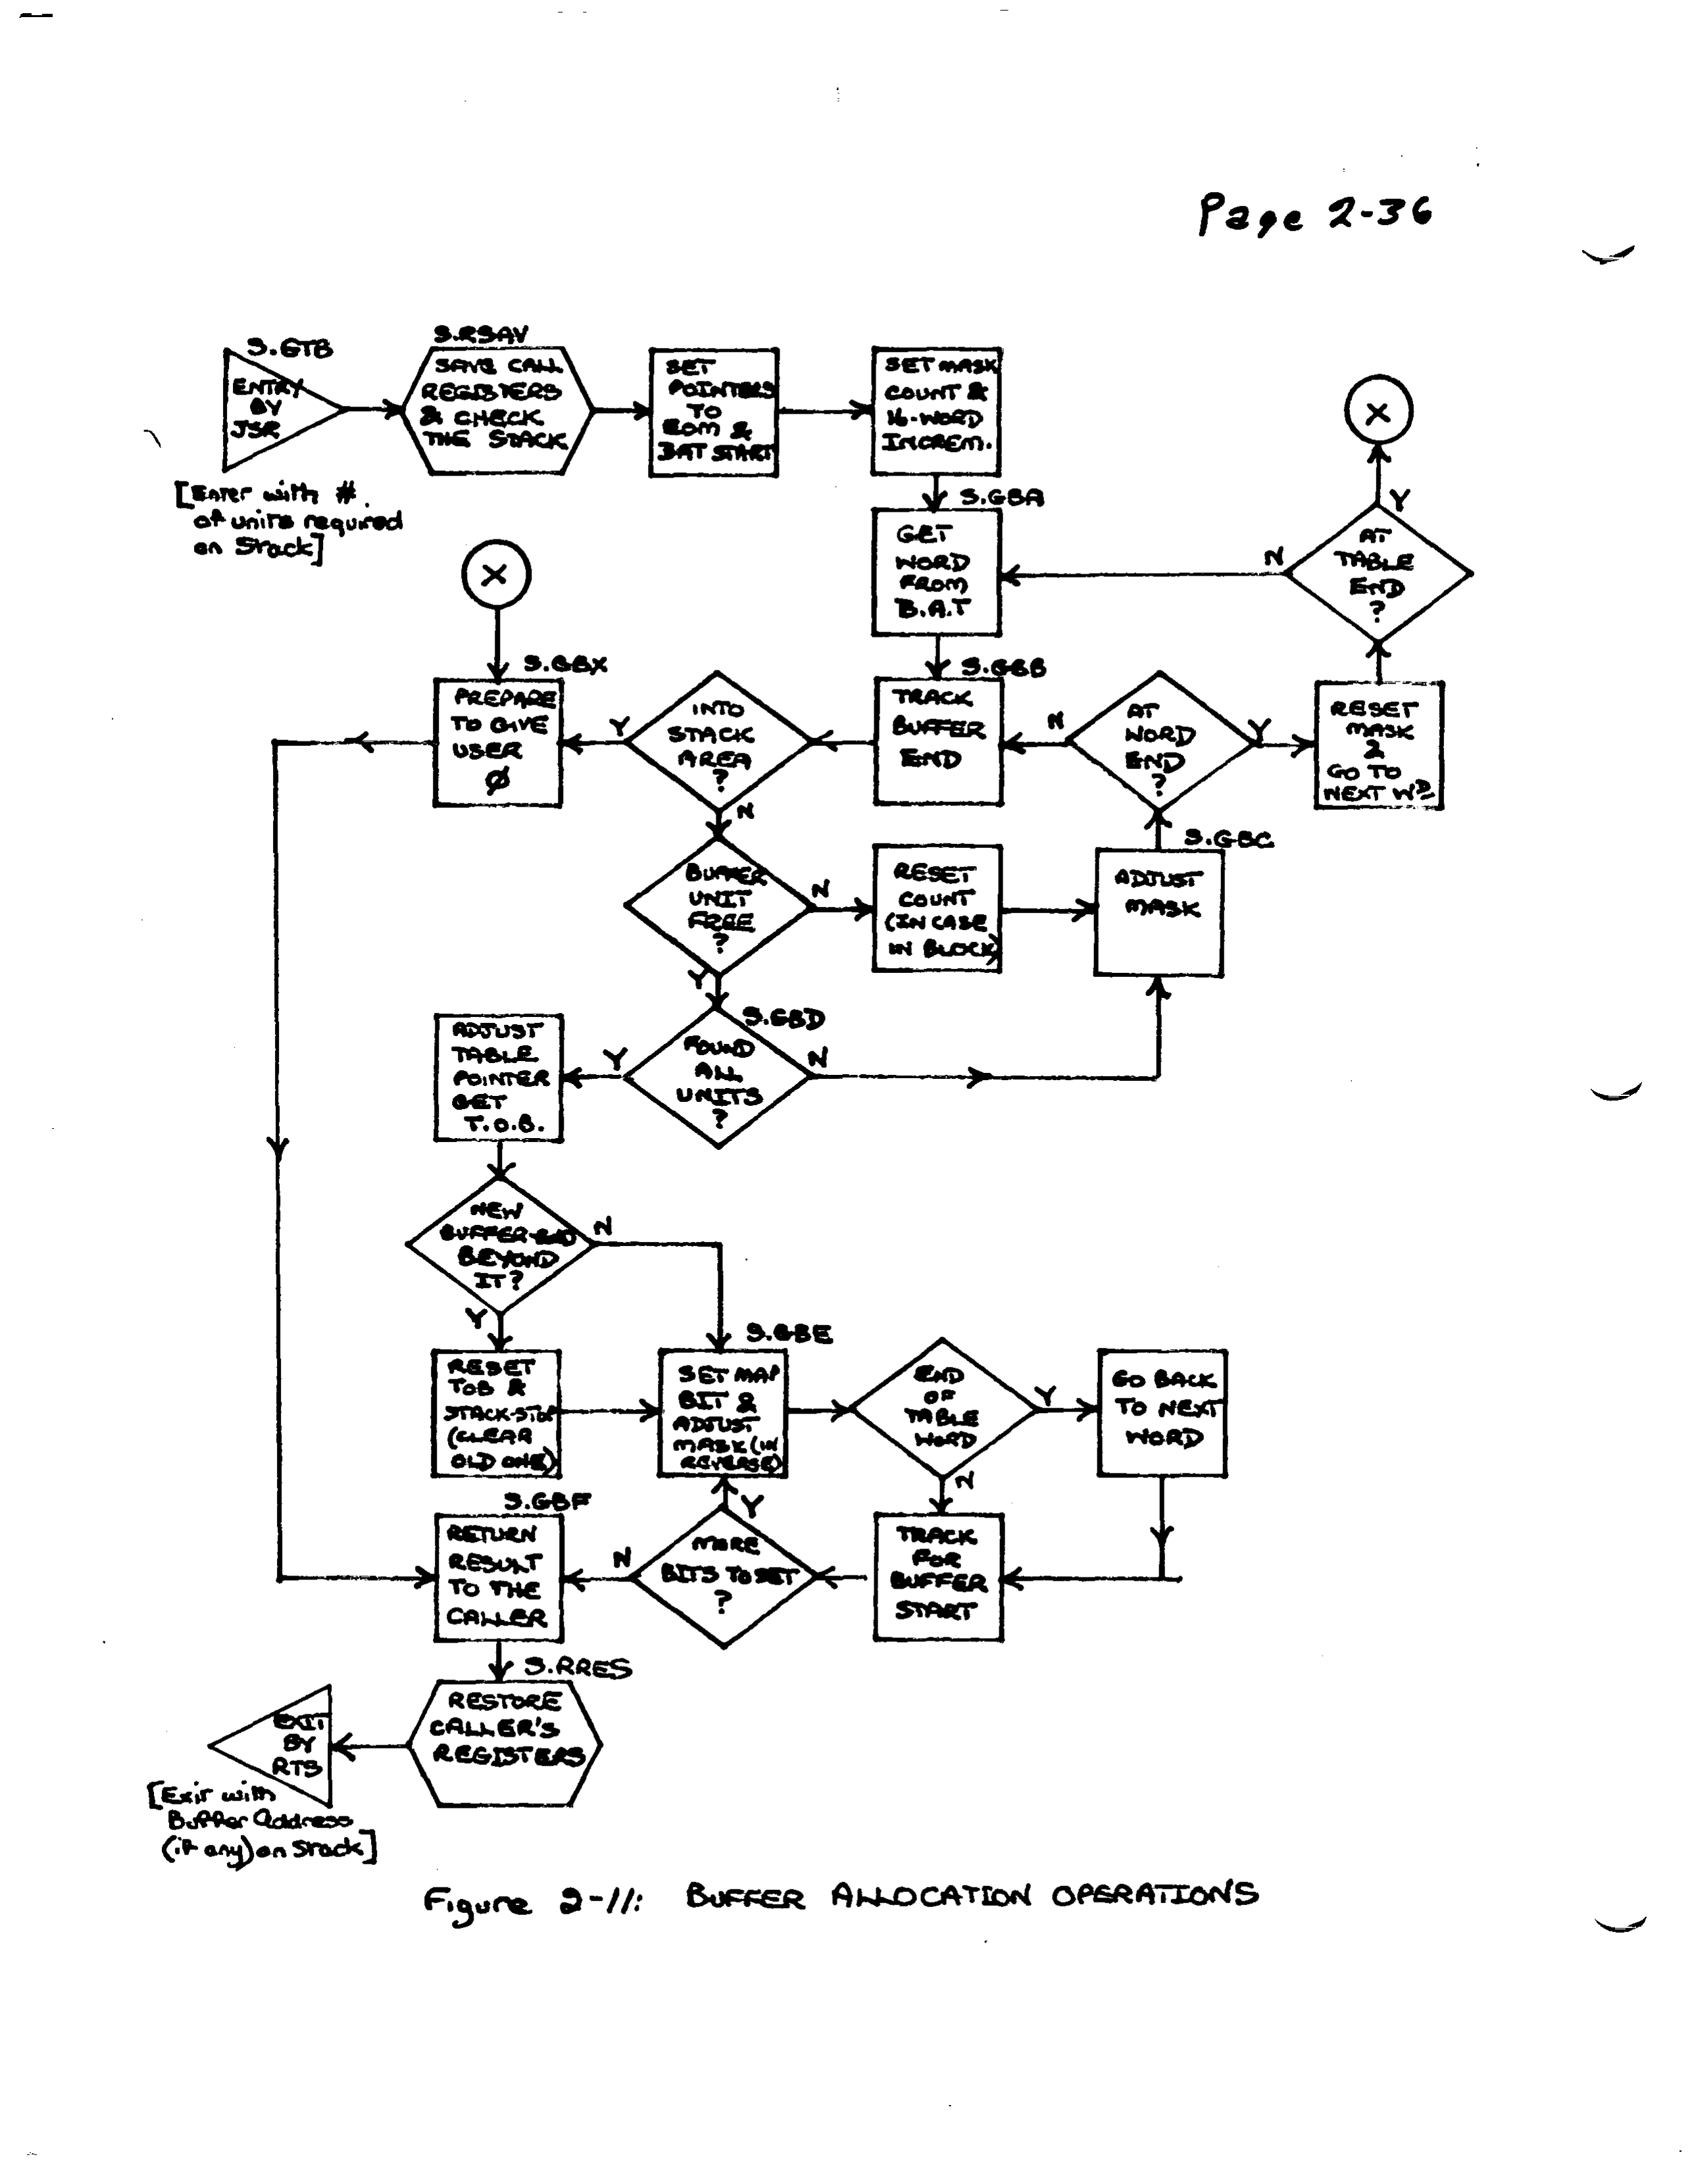 Page 2-36
S.GTB
ENTRY
BY
JSR
[Enter with #
of units required
on Stack]
S.RSAV
SAVE CALL
REGISTERS
& CHECK
THE STACK
SET
POINTERS
TO
EOM &
BAT START
SET MASK
COUNT &
16-WORD
INCREM.
S.GBA
GET
WORD
FROM
B.A.T
X
Y
AT
TABLE
END
?
N
X
S.GBX
PREPARE
TO GIVE
USER
Ø
Y
INTO
STACK
AREA
?
N
S.GBB
TRACK
BUFFER
END
N
AT
WORD
END
?
Y
RESET
MASK
&
GO TO
NEXT WD
BUFFER
UNIT
FREE
?
N
Y
RESET
COUNT
(IN CASE
IN BLOCK)
S.GBC
ADJUST
MASK
S.GBD
FOUND
ALL
UNITS
?
N
Y
ADJUST
TABLE
POINTER
GET
T.O.B.
NEW
BUFFER-END
BEYOND
IT?
N
Y
RESET
TOB &
STACK-STOP
(CLEAR
OLD ONE)
S.GBE
SET MAP
BIT &
ADJUST
MASK (IN
REVERSE)
END
OF
TABLE
WORD
Y
N
GO BACK
TO NEXT
WORD
S.GBF
RETURN
RESULT
TO THE
CALLER
N
MORE
BITS TO SET
?
Y
TRACK
FOR
BUFFER
START
S.RRES
RESTORE
CALLER'S
REGISTERS
EXIT
BY
RTS
[Exit with
Buffer Address
(if any) on Stack]
Figure 2-11: BUFFER ALLOCATION OPERATIONS